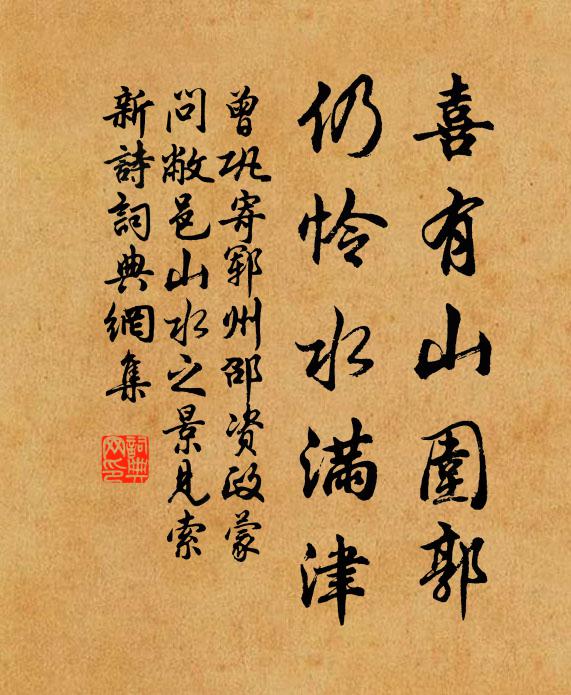 喜有山圍郭
仍怜水满津
曾巩寄鄆州邵资政蒙
问敝邑山水之景见索
新詩詞典網集
詞典网印